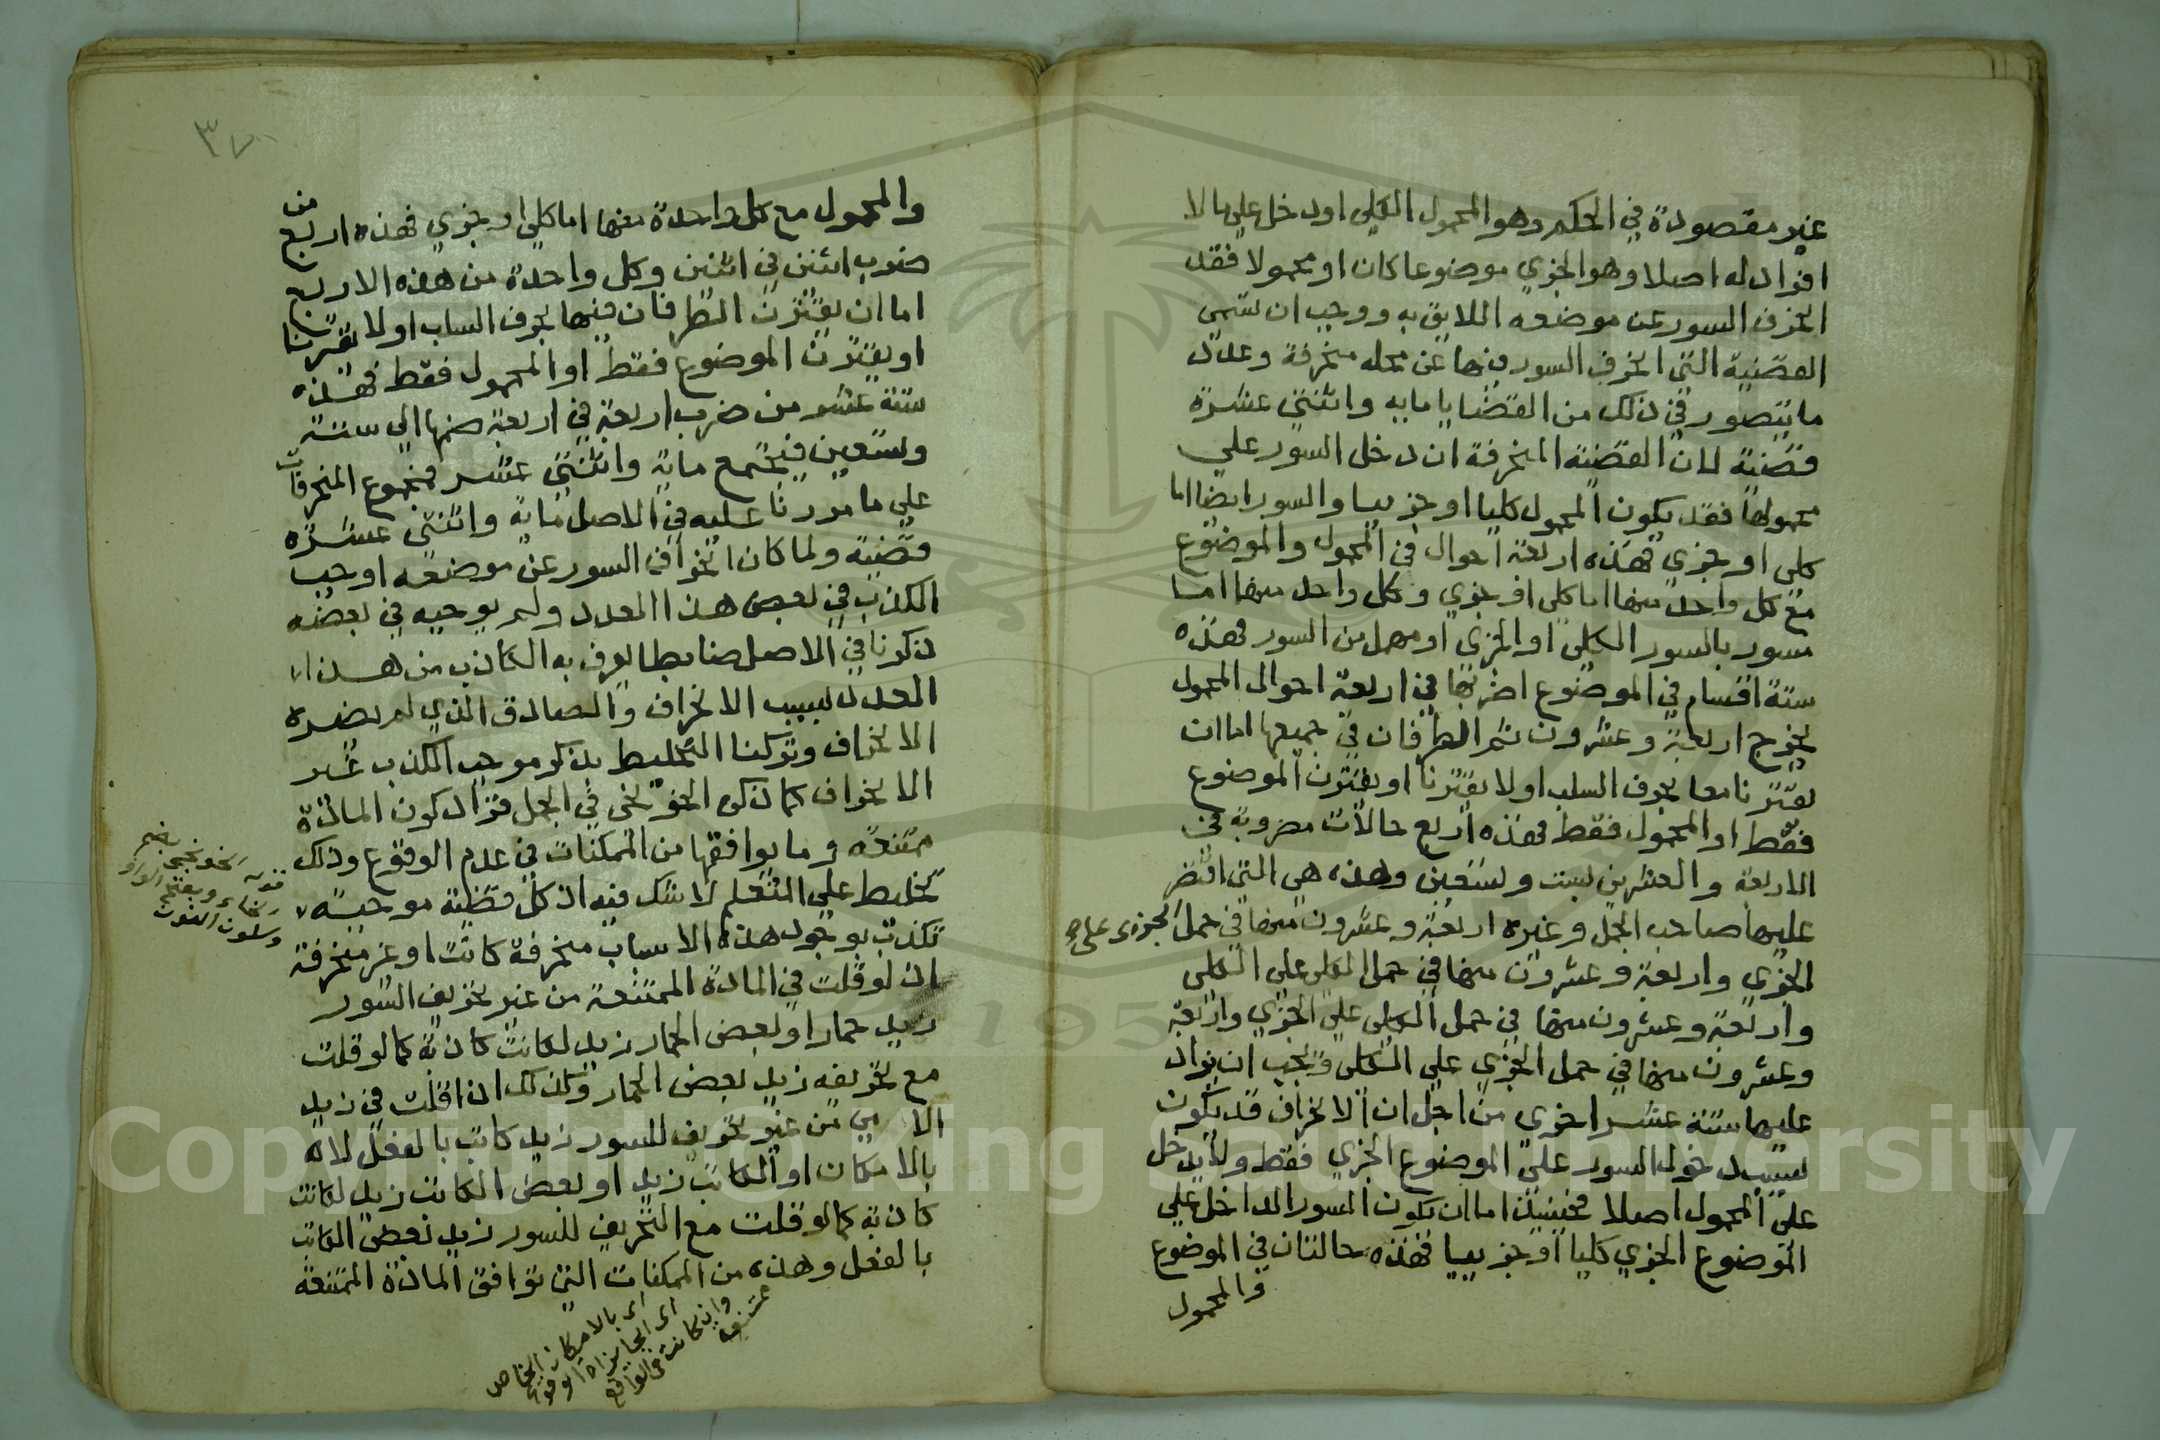 غير مقصودة في الحكم وهو المحمول الكلي او دخل علي مالا
افراد له اصلا وهو الجزي موضوعا كان او محمولا فقد
انحرف السور عن موضعه اللايق به ووجب ان تسمي
القضية التي انحرف السور منها عن محله منحرفة وعدد
ما يتصور في ذلك من القضايا ماية واثنتي عشرة
قضية لان القضية المنحرفة ان دخل السور علي
محمولها فقد يكون المحمول كليا او جزييا والسور ايضا اما
كلي او جزي فهذه اربعة احوال في المحمول والموضوع
مع كل واحد منها اما كلي او جزي وكل واحد منها اما
مسور بالسور الكلي او الجزي او مهمل من السور فهذه
ستة اقسام في الموضوع اضربها في اربعة احوال المحمول
يخرج اربعة وعشرون ثم الطرفان في جميعها اما ان
يقترنا معا بحرف السلب اولا يقترنا او يقترن الموضوع
فقط او المحمول فقط فهذه اربع حالات مضروبة في
الاربعة والعشرين بست وتسعين وهذه هي التي اقتصر
عليها صاحب الجمل وغيره اربعة وعشرون منها في حمل الجزي علي
الجزي واربعة وعشرون منها في حمل الكلي علي الكلي
واربعة وعشرون منها في حمل الكلي علي الجزي واربعة
وعشرون منها في حمل الجزي علي الكلي ويجب ان يزاد
عليها ستة عشر اخري من اجل ان الانحراف قد يكون
بسبب دخول السور علي الموضوع الجزي فقط ولا يدخل
علي المحمول اصلا فحينيذ اما ان يكون السور الداخل علي
الموضوع الجزي كليا او جزييا فهذه حالتان في الموضوع
والمحمول
٣٧
والمحمول مع كل واحدة منها اما كلي او جزي فهذه اربع من
ضرب اثنين في اثنين وكل واحدة من هذه الاربع
اما ان يقترن الطرفان فيها بحرف السلب اولا يقترنا
او يقترن الموضوع فقط او المحمول فقط فهذه
ستة عشر من ضرب اربعة في اربعة ضمها الي ستة
وتسعين فيجتمع ماية واثنتي عشر فمجموع المنحرفات
علي ما مررنا عليه في الاصل ماية واثنتي عشرة
قضية ولما كان انحراف السور عن موضعه اوجب
الكذب في بعض هذا العدد ولم يوجبه في بعضه
ذكرنا في الاصل ضابطا يعرف به الكاذب من هذا
العدد لسبب الانحراف والصادق الذي لم يضره
الانحراف وتركنا التخليط بذكر موجب الكذب غير
الانحراف كما ذكره الخونجي في الجمل فزاد كون المادة
ممتنعة وما يوافقها من الممكنات في عدم الوقوع وذلك
تخليط علي المتعلم لا شك فيه اذ كل قضية موجبة
تكذب بوجود هذه الاسباب منحرفة كانت او غير منحرفة
اذ لو قلت في المادة الممتنعة من غير تحريف السور
زيد حمار او بعض الحمار زيد لكانت كاذبة كما لو قلت
مع تحريفه زيد بعض الحمار وكذلك اذا قلت في زيد
الامي من غير تحريف للسور زيد كاتب بالفعل لانه
بالامكان او الكاتب زيد او بعض الكاتب زيد لكانت
كاذبة كما لو قلت مع التحريف للسور زيد بعض الكاتب
بالفعل وهذه من الممكنات التي توافق المادة الممتنعة
قوله الخونجي بضم
الخاء وبفتح الواو
وسكون النون
اي بالامكان الخاص
اي الجايزة الوقوع
وان كانت في الواقع
ممتنعة
Copyright © King Saud University
195